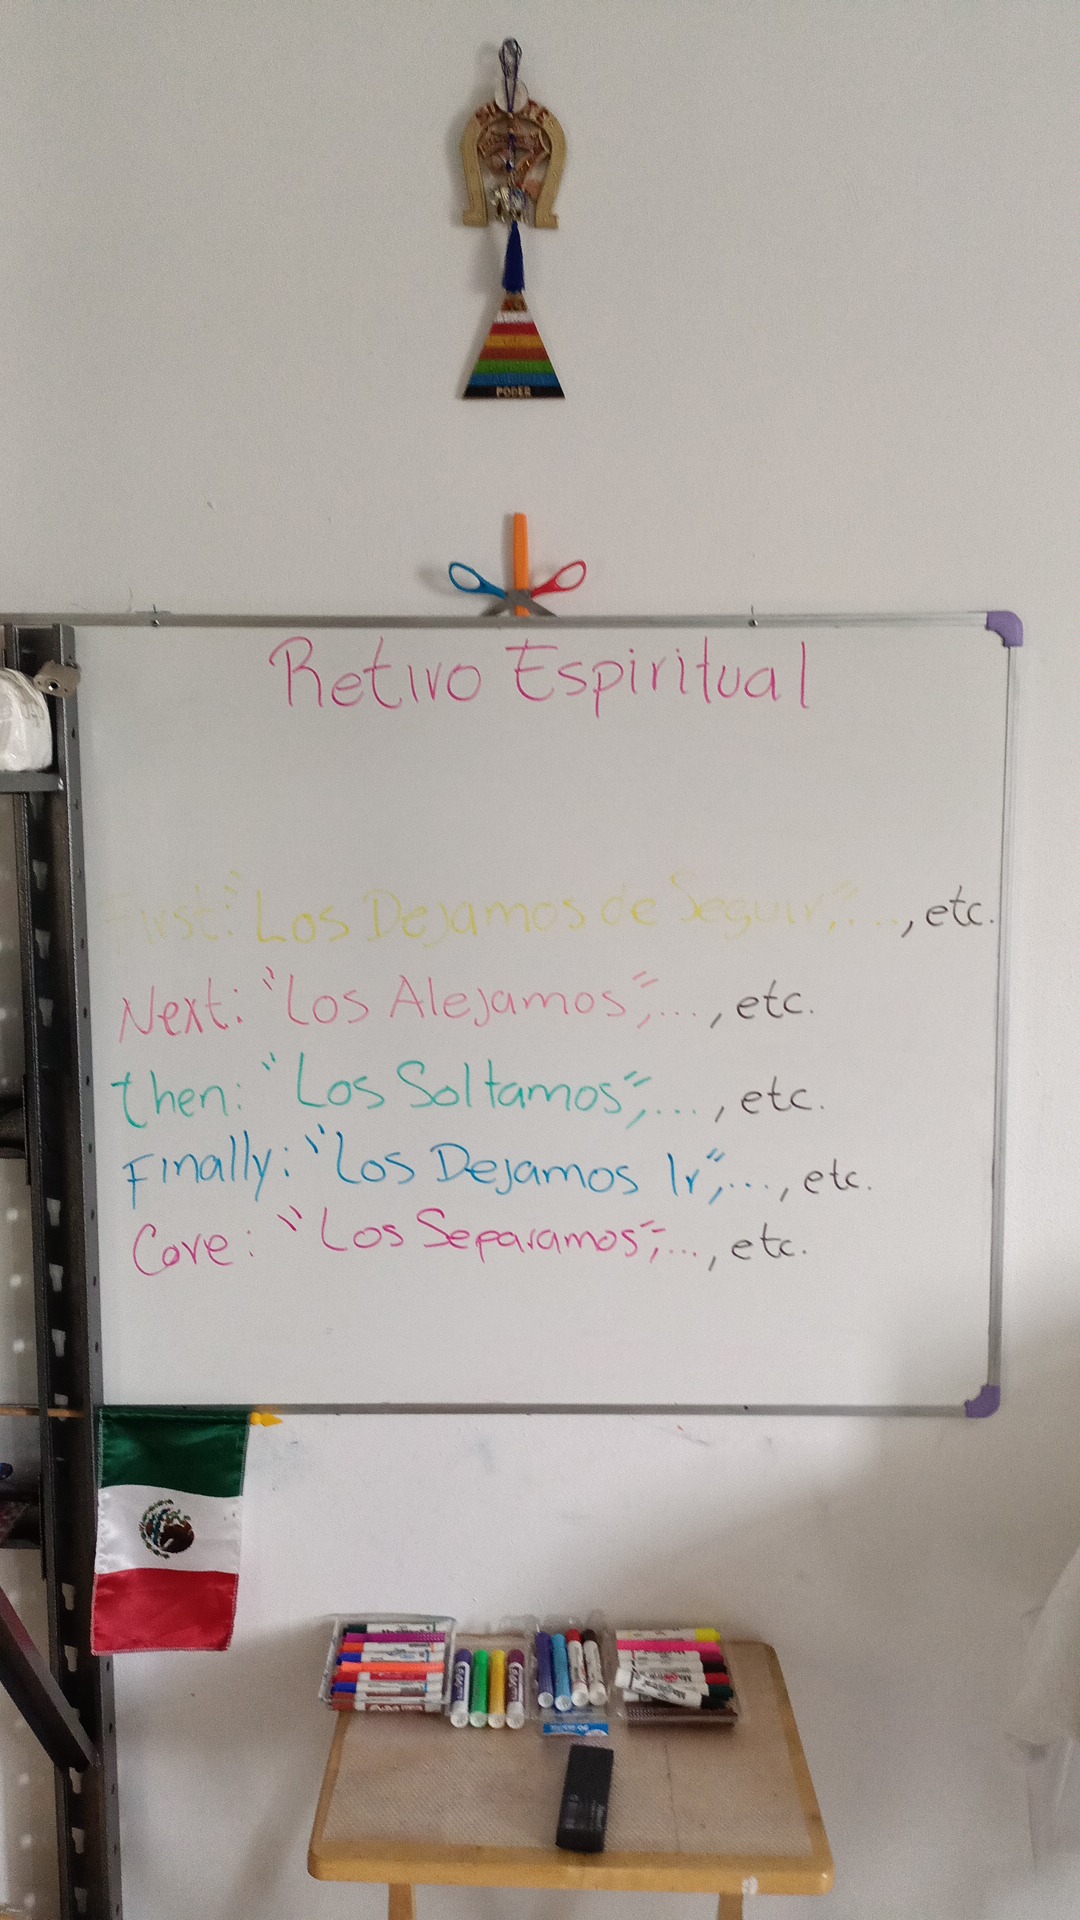 PODER
Retiro Espiritual
First: "Los Dejamos de Seguir";..., etc.
Next: "Los Alejamos";..., etc.
then: "Los Soltamos";..., etc.
Finally: "Los Dejamos Ir";..., etc.
Core: "Los Separamos";..., etc.